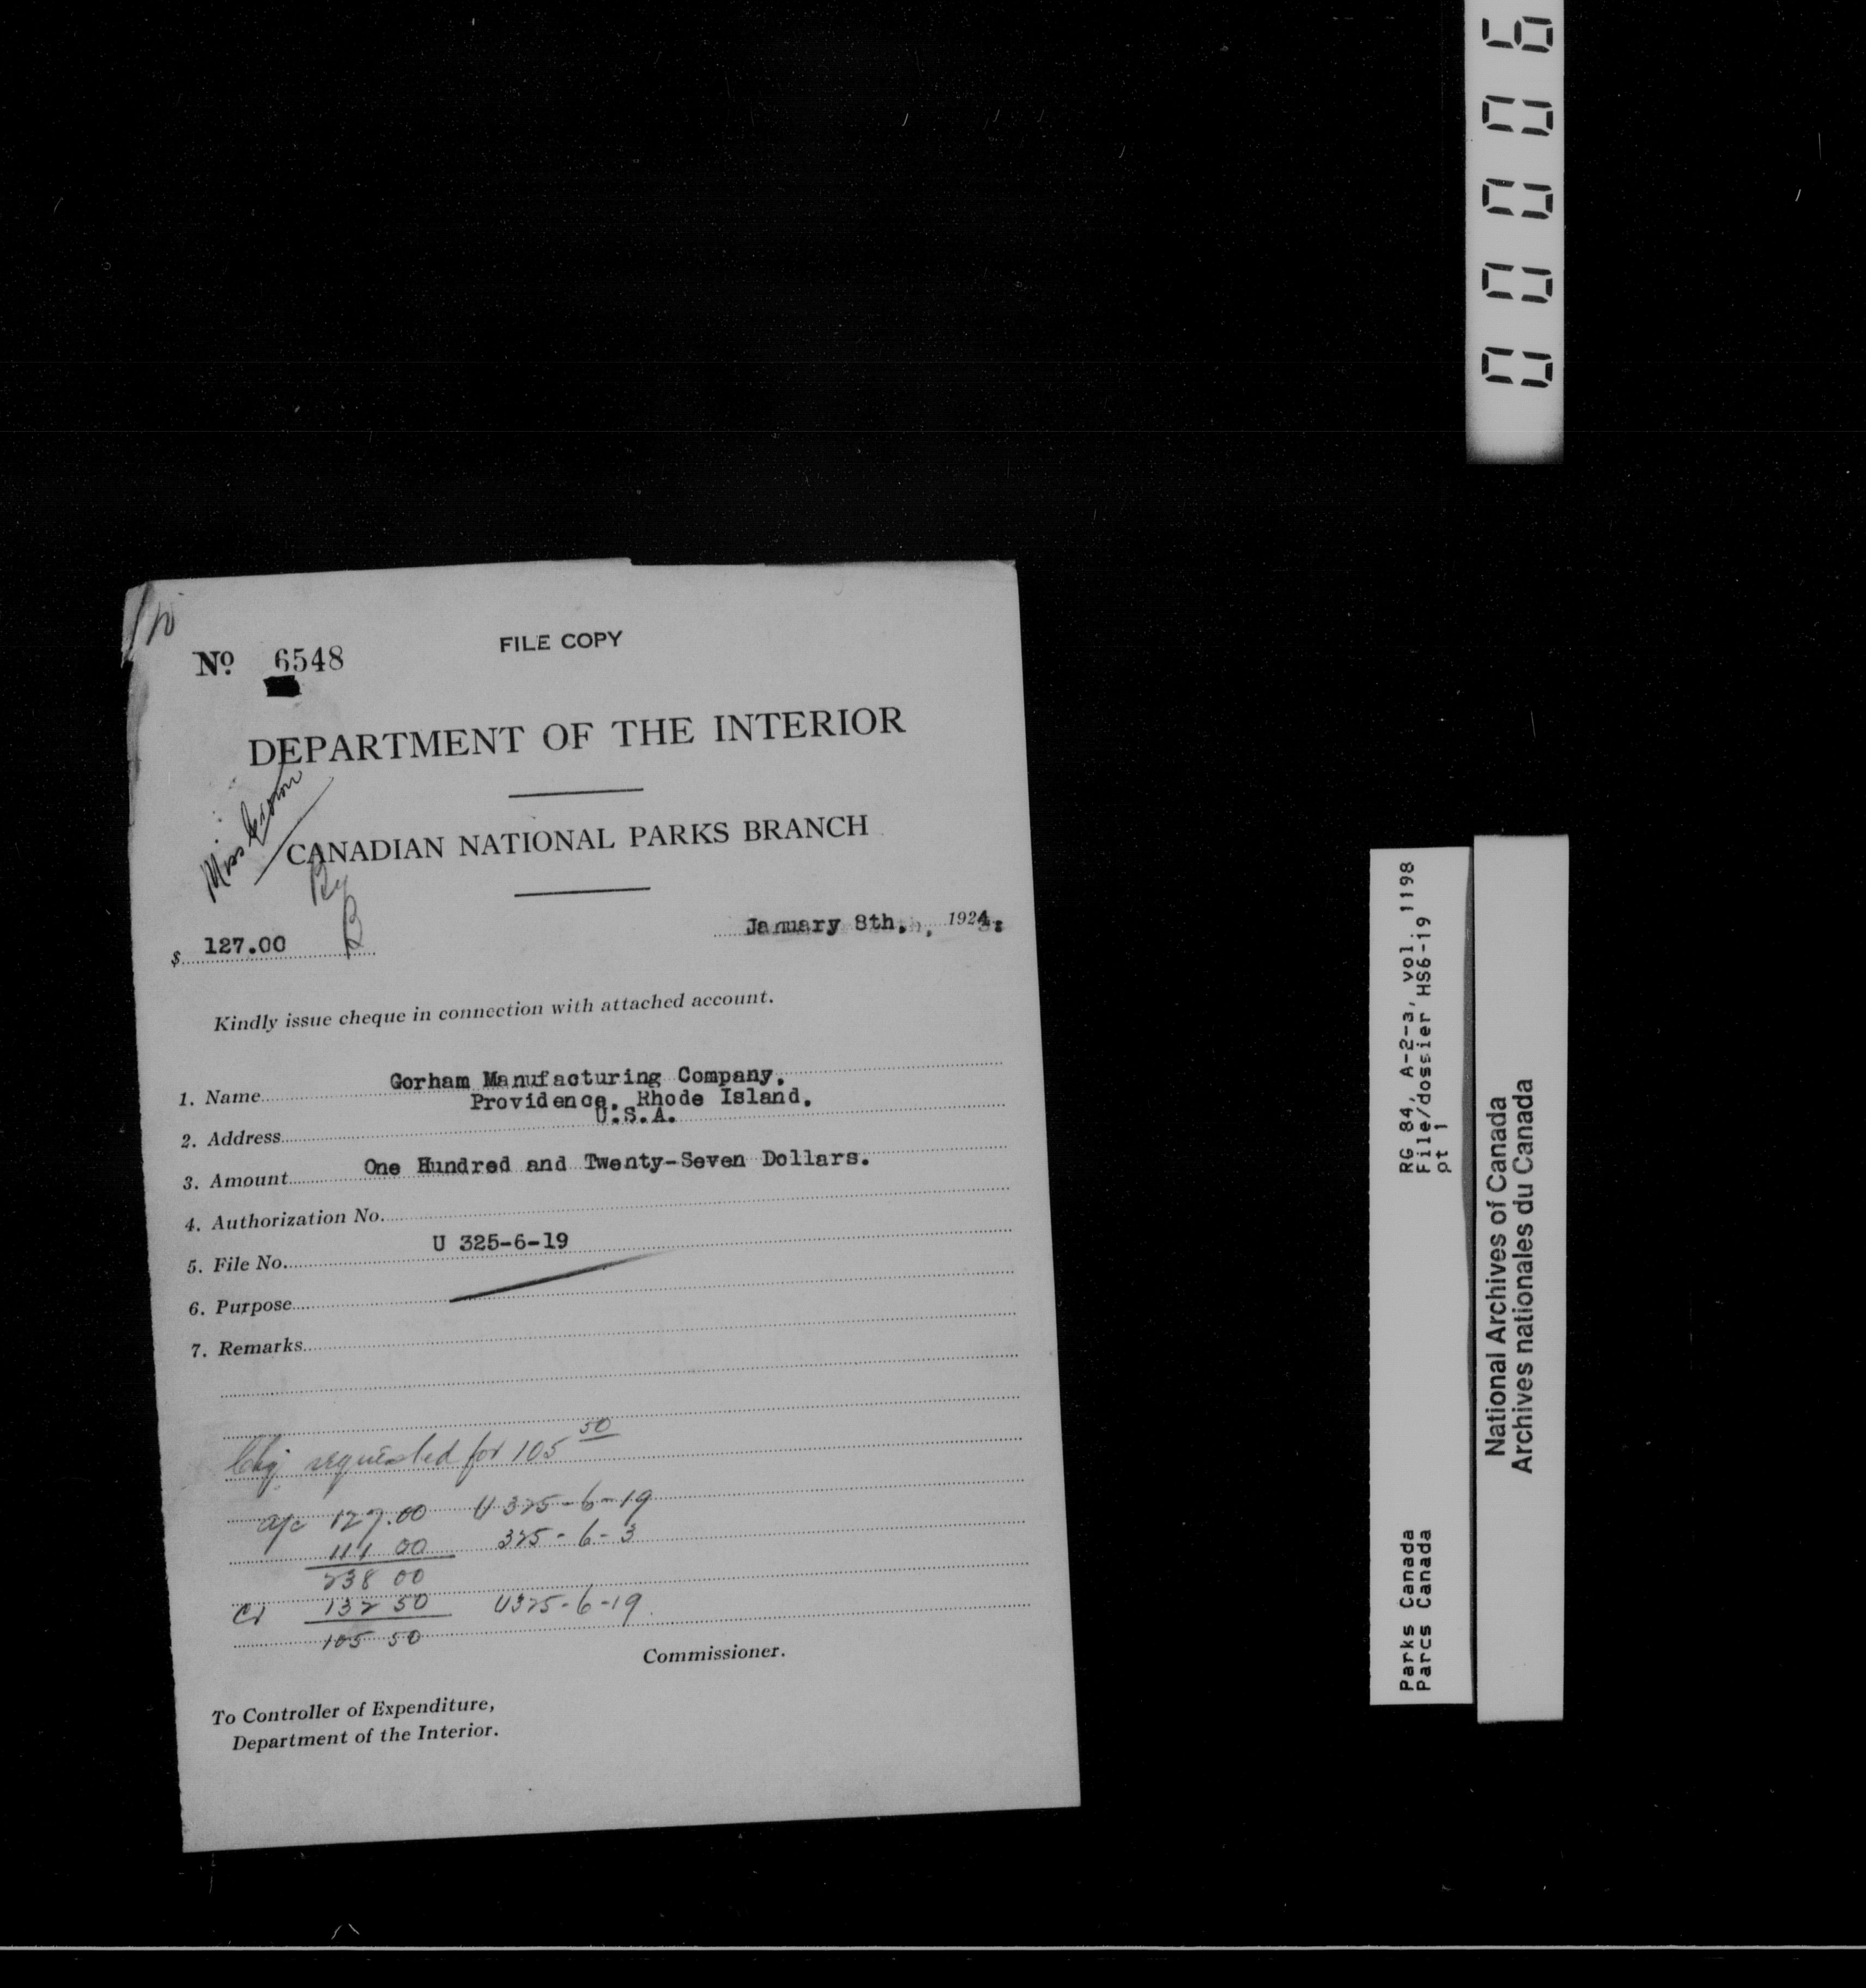 No. 6548
FILE COPY
DEPARTMENT OF THE INTERIOR
Miss
CANADIAN NATIONAL PARKS BRANCH
$ 127.00
January 8th, , 1924.
Kindly issue cheque in connection with attached account.
1. Name Gorham Manufacturing Company.
Providence, Rhode Island.
2. Address U.S.A.
3. Amount One Hundred and Twenty-Seven Dollars.
4. Authorization No.
5. File No. U 325-6-19
6. Purpose
7. Remarks
Chq requested for 105 50
a/c 127.00 U 325-6-19
111 00 325-6-3
238 00
Cr 132 50 U325-6-19
105 50
Commissioner.
To Controller of Expenditure,
Department of the Interior.
00006
RG 84, A-2-3, vol. 1198
File/dossier HS6-19
pt 1
Parks Canada
Parcs Canada
National Archives of Canada
Archives nationales du Canada